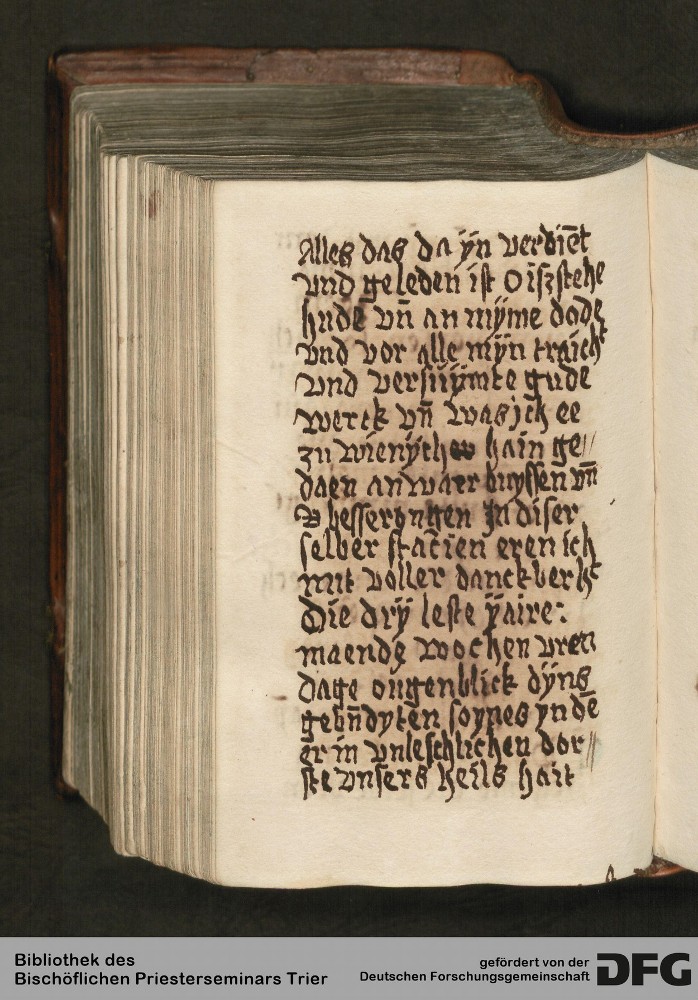 Alles das da ÿn verdiēt
vnd geleden ist O
hude vn̄ an mÿme dode
vnd vor alle mÿn traich
vnd versuÿmte gude
werck vn̄ was ich ee
zu wienÿch hain ge//
daen anwaer buyssen vn̄
besserongen In diser
selber stacien eren ich
mit voller danckberh
Die drÿ leste ÿaire:
maende wochen vren
dage ougenblick dÿns
gebn̄dyten loypes yn dē
er in vnleschlichen dor//
ste vnsers heils hait
Bibliothek des
Bischöflichen Priesterseminars Trier
gefördert von der
Deutschen Forschungsgemeinschaft
DFG